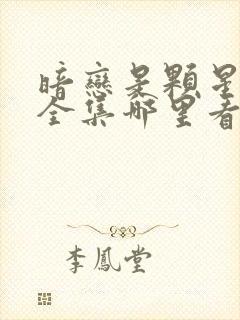 暗戀是顆星
全集哪里看
李鳳堂